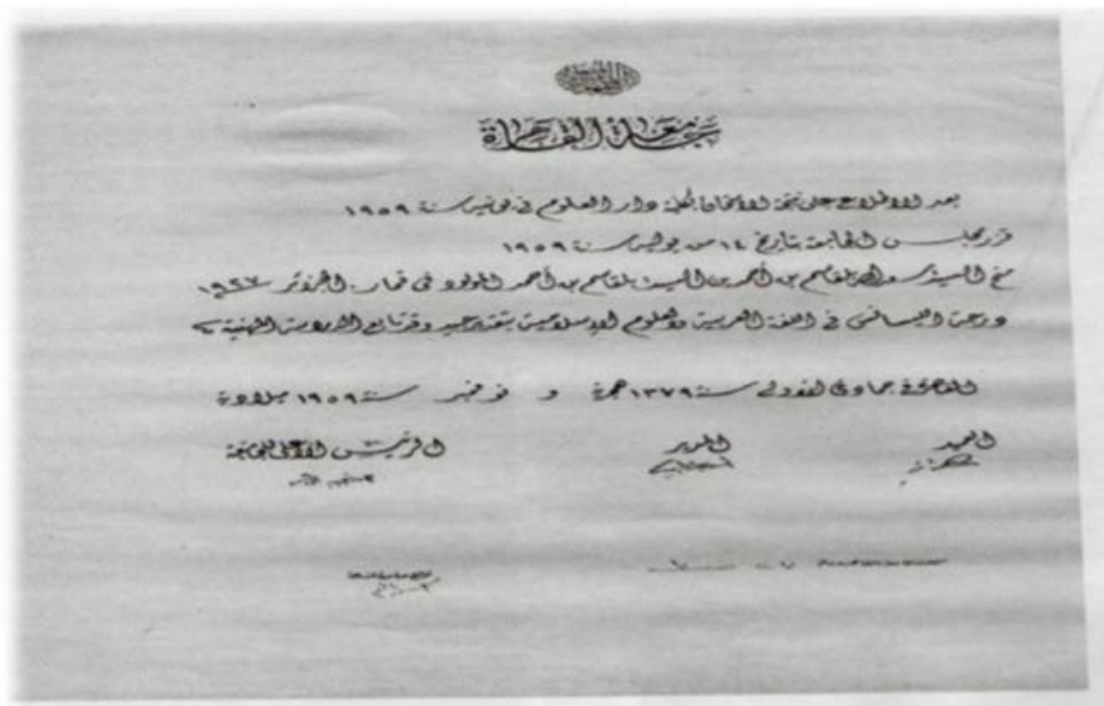 جامعة القاهرة
بعد الاطلاع على نتيجة الامتحان بكلية دار العلوم في يونيه سنة ١٩٥٩
قرر مجلس الجامعة بتاريخ ١٤ من يوليه سنة ١٩٥٩
منح السيد سعد الله بلقاسم بن أحمد بن السيد بلقاسم بن أحمد المولود في قمار الجزائر
درجة الليسانس في اللغة العربية والعلوم الإسلامية بتقدير جيد وقد تابع الدروس
القاهرة في جمادى الأولى سنة ١٣٧٩ هجرية و نوفمبر سنة ١٩٥٩ ميلادية
العميد المدير الرئيس الأعلى للجامعة